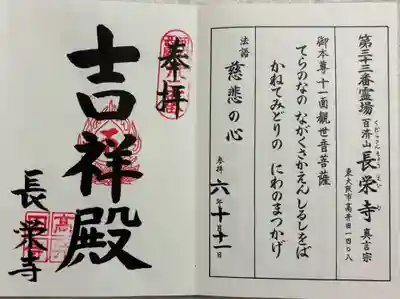 第三十三番霊場
百済山 長榮寺 真言宗
くだらさん ちょうえいじ
東大阪市高井田一四〇八
御本尊 十一面觀世音菩薩
てらのなの ながくさかえん しるしをば
かねてみどりの にわのまつかげ
法語 慈悲の心
参拝 六年十月十一日
奉拝
吉祥殿
長榮寺